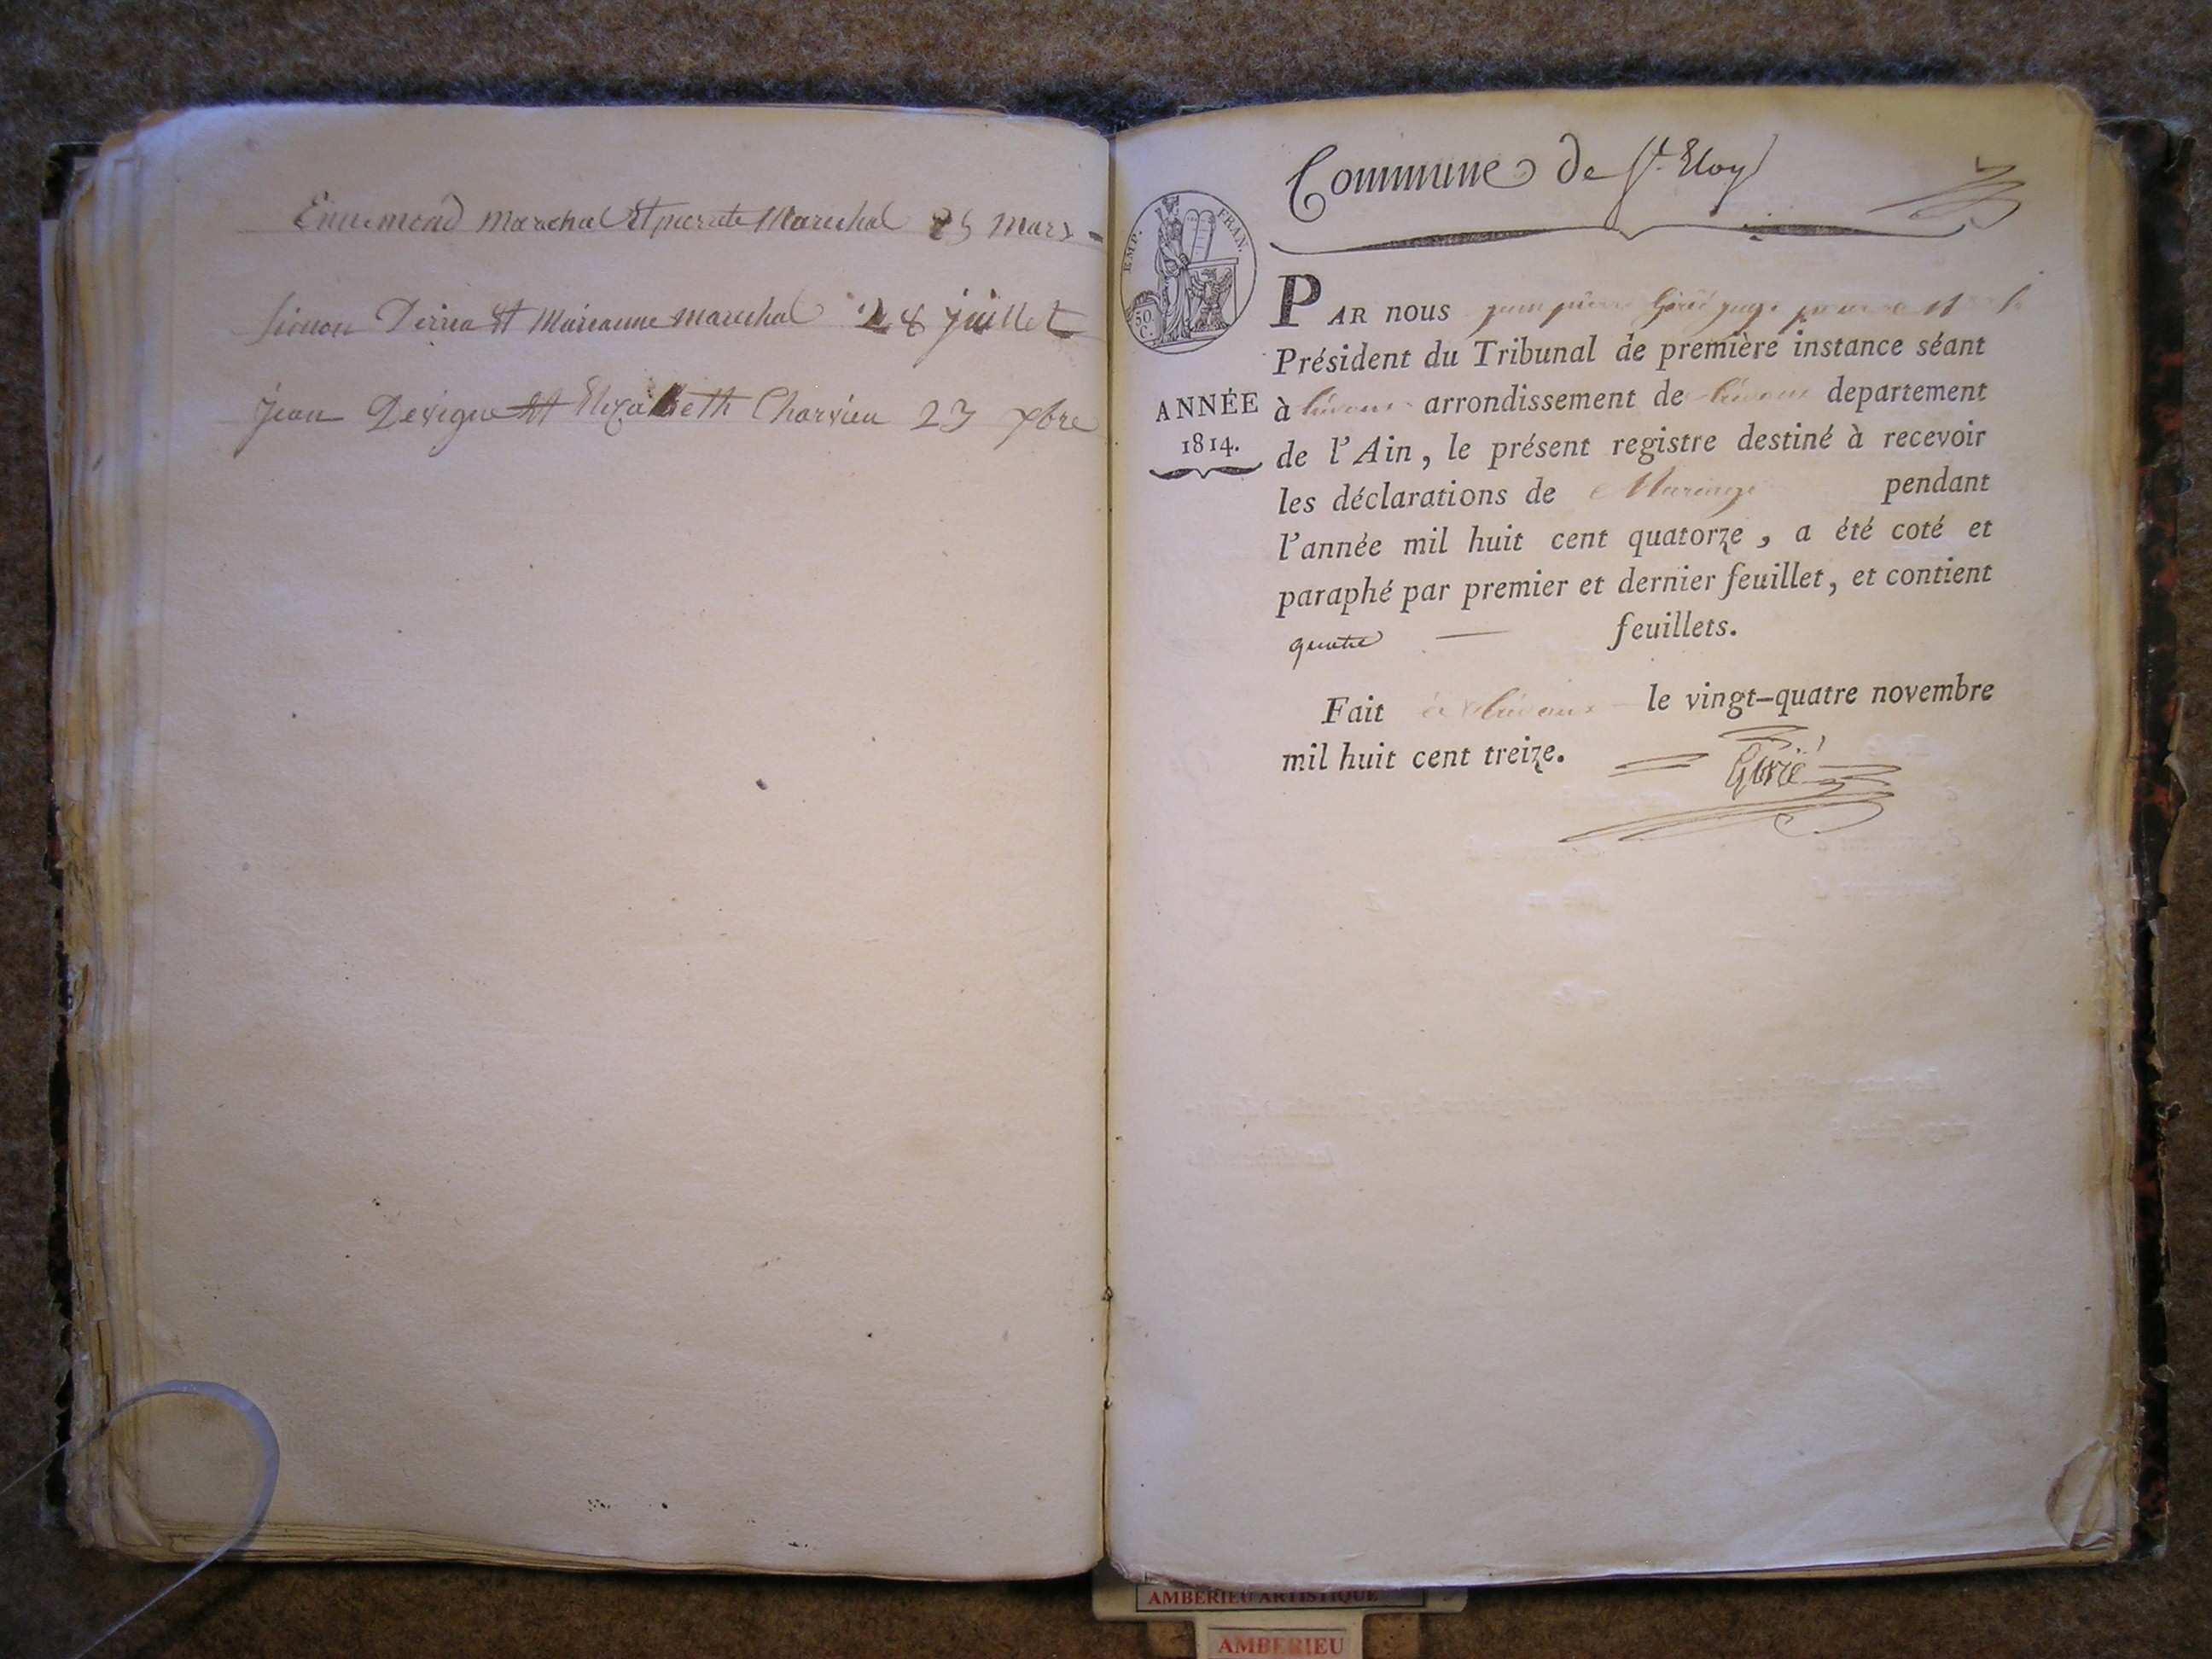 Ennemond Marechal Et pierrete Marechal 25 Mars
Simon Perra Et Marianne marechal 28 juillet
Jean Devigne Et Elizabeth Charvieu 23 xbre
Commune de St. Eloy
EMP. FRAN.
50. C.
ANNÉE
1814.
PAR nous jean pierre Girié juge pour
Président du Tribunal de première instance séant
à trévoux arrondissement de trévoux departement
de l'Ain, le présent registre destiné à recevoir
les déclarations de Mariage pendant
l'année mil huit cent quatorze, a été coté et
paraphé par premier et dernier feuillet, et contient
quatre — feuillets.
Fait à trévoux le vingt-quatre novembre
mil huit cent treize.
Girié
AMBERIEU ARTISTIQUE
AMBERIEU